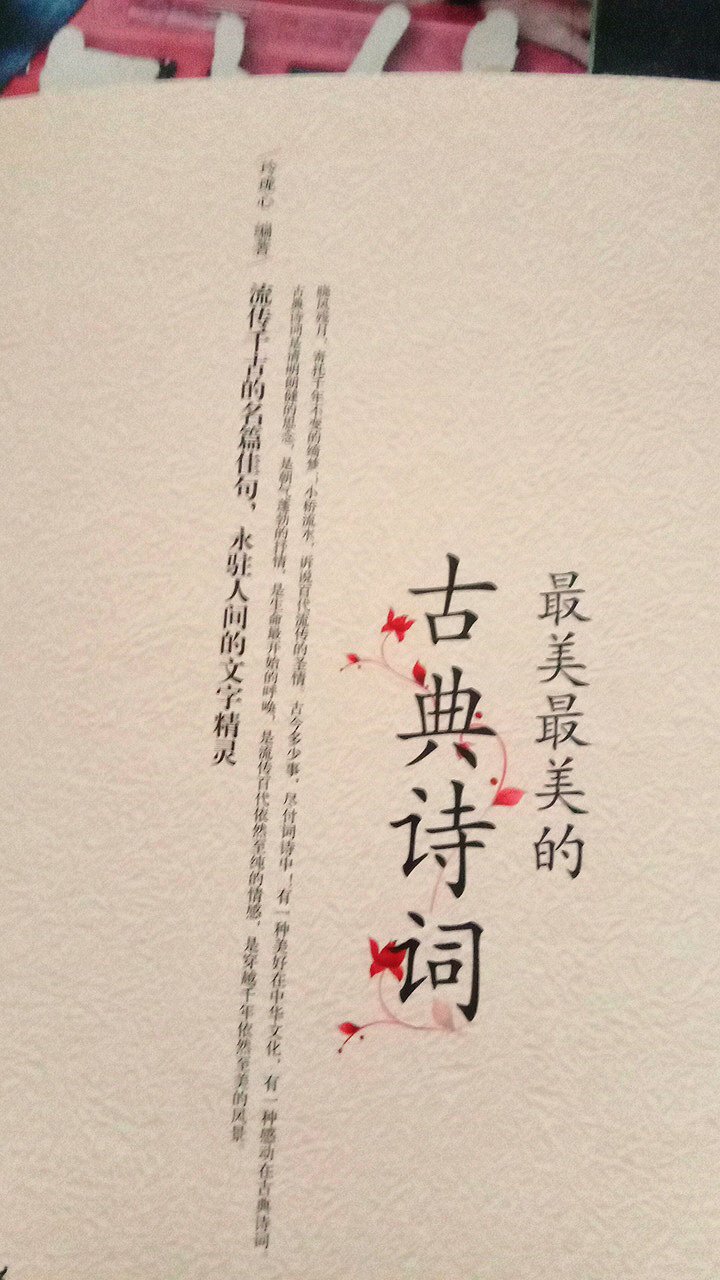 最美最美的
古典诗词
晓风残月，寄托千年不变的绮梦；小桥流水，诉说百代流传的圣情。古今多少事，尽付词诗中！有一种美好在中华文化，有一种感动在古典诗词
古典诗词是清明朗健的思念，是朝气蓬勃的抒情，是生命最开始的呼唤，是流传百代依然至纯的情感，是穿越千年依然至美的风景
流传千古的名篇佳句，永驻人间的文字精灵
玲珑心 编著